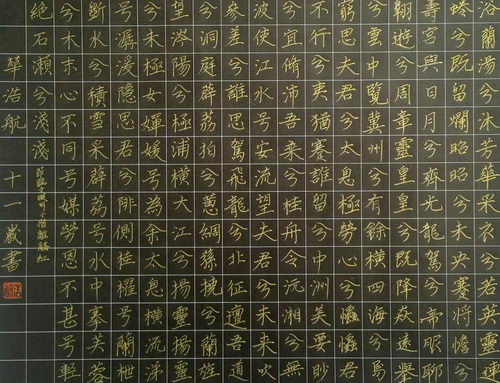 浴蘭湯兮沐芳華采衣兮若英靈連
蜷兮既留爛昭昭兮未央蹇將憺兮
壽宮與日月兮齊光龍駕兮帝服聊
翱遊兮周章靈皇皇兮既降猋遠舉
兮雲中覽冀州兮有餘橫四海兮焉
窮思夫君兮太息極勞心兮君
不行兮夷猶蹇誰留兮中洲美要眇
兮宜脩沛吾乘兮桂舟令沅湘兮無
波使江水兮安流望夫君兮未來吹
參差兮誰思駕飛龍兮北征邅吾道
兮洞庭薜荔柏兮蕙綢蓀橈兮蘭旌
望涔陽兮極浦橫大江兮揚靈揚靈
兮未極女嬋媛兮為余太息橫流涕
兮潺湲隱思君兮陫側桂櫂兮蘭枻
斲冰兮積雪采薜荔兮水中搴芙蓉
兮木末心不同兮媒勞恩不甚兮輕
絕石瀨兮淺淺
華浩航十一歲書